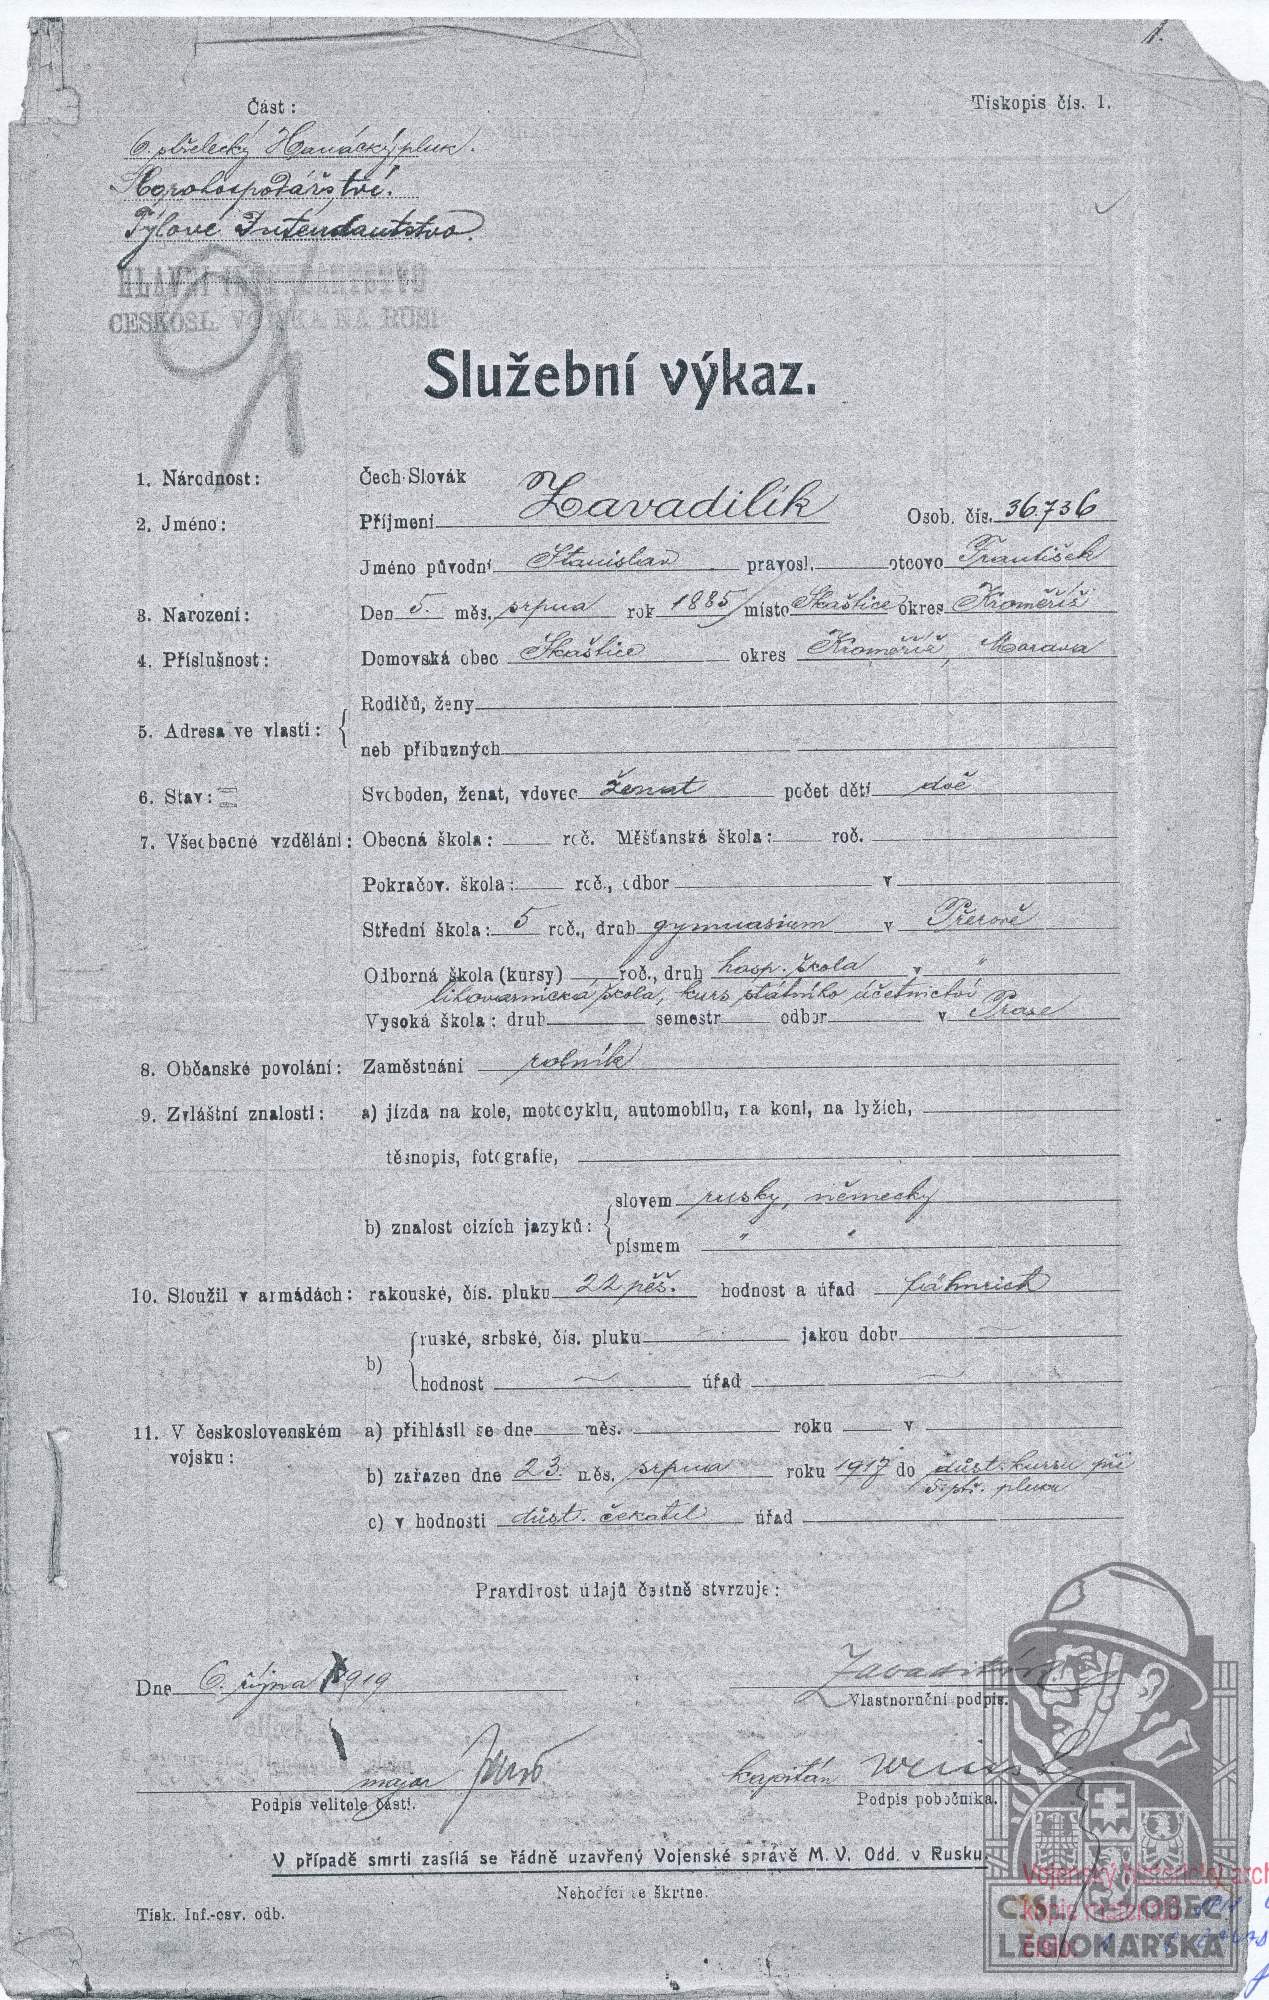 1.
Část: Tiskopis čís. 1.
6. střelecký Hanácký pluk.
Agrohospodářství.
Týlové Intendantstvo.
HLAVNÍ INTENDANTSTVO
ČESKOSL. VOJSKA NA RUSI
Služební výkaz.
1. Národnost: Čech-Slovák
2. Jméno: Příjmení Zavadilík Osob. čís. 36.736
Jméno původní Stanislav pravosl. otcovo František
3. Narození: Den 5. měs. srpna rok 1885 místo Skaštice okres Kroměříž
4. Příslušnost: Domovská obec Skaštice okres Kroměříž, Morava
5. Adresa ve vlasti: { Rodičů, ženy
neb příbuzných
6. Stav: Svoboden, ženat, vdovec ženat počet dětí dvě
7. Všeobecné vzdělání: Obecná škola: roč. Měšťanská škola: roč.
Pokračov. škola: roč., odbor v
Střední škola: 5 roč., druh gymnasium v Přerově
Odborná škola (kursy) roč., druh hosp. škola v "
lihovarnická škola, kurs státního účetnictví
Vysoká škola: druh semestr odbor v Praze
8. Občanské povolání: Zaměstnání rolník
9. Zvláštní znalosti: a) jízda na kole, motocyklu, automobilu, na koni, na lyžích,
těsnopis, fotografie,
b) znalost cizích jazyků: { slovem rusky, německy
písmem " "
10. Sloužil v armádách: rakouské, čís. pluku 22 pěš. hodnost a úřad fähnrich
b) { ruské, srbské, čís. pluku jakou dobu
hodnost úřad
11. V československém vojsku: a) přihlásil se dne měs. roku v
b) zařazen dne 23. měs. srpna roku 1917 do důst. kursu při
5. stř. pluku
c) v hodnosti důst. čekatel úřad
Pravdivost údajů čestně stvrzuje:
Dne 6. října 1919 Zavadilík
Vlastnoruční podpis.
major kapitán
Podpis velitele části. Podpis pobočníka.
V případě smrti zasílá se řádně uzavřený Vojenské správě M. V. Odd. v Rusku.
Nehodící se škrtne.
Tisk. Inf.-osv. odb.
Vojenský historický arch
kopie materiálu
číslo
ČSL. OBEC
LEGIONÁŘSKÁ